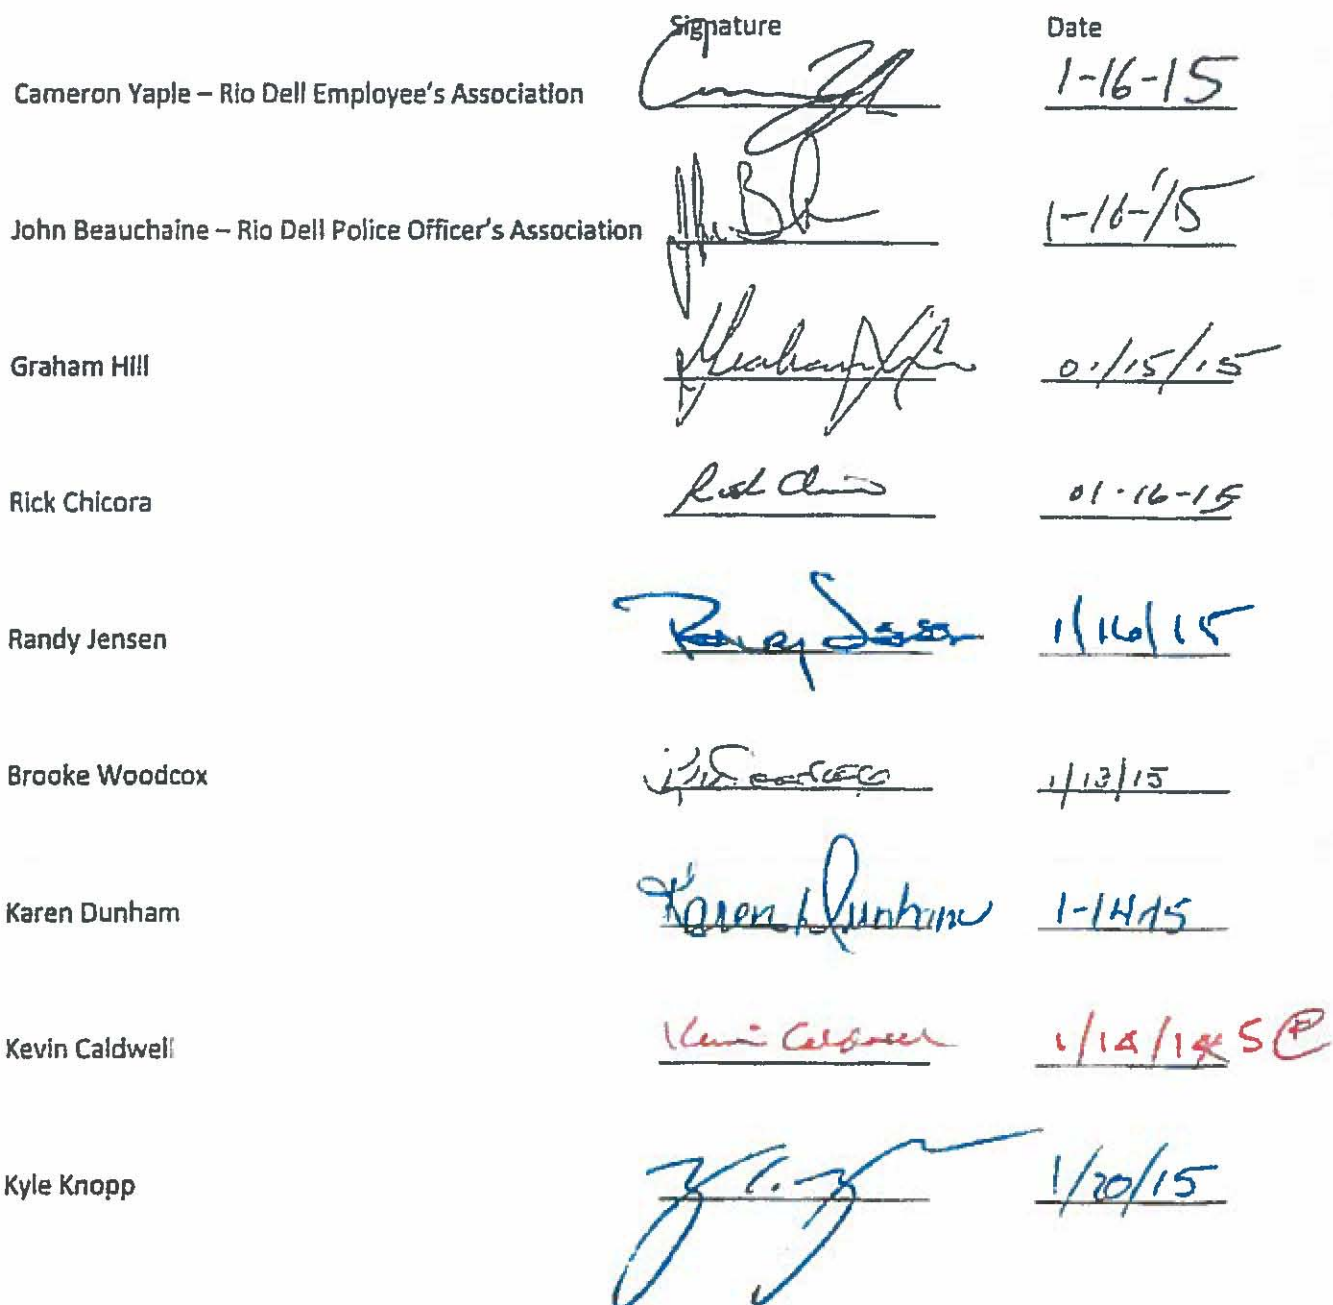 Signature Date
Cameron Yaple – Rio Dell Employee's Association 1-16-15
John Beauchaine – Rio Dell Police Officer's Association 1-16-15
Graham Hill Graham Hill 01/15/15
Rick Chicora 01-16-15
Randy Jensen Randy Jensen 1/16/15
Brooke Woodcox B Woodcox 1/13/15
Karen Dunham Karen Dunham 1-14-15
Kevin Caldwell Kevin Caldwell
Kyle Knopp 1/20/15